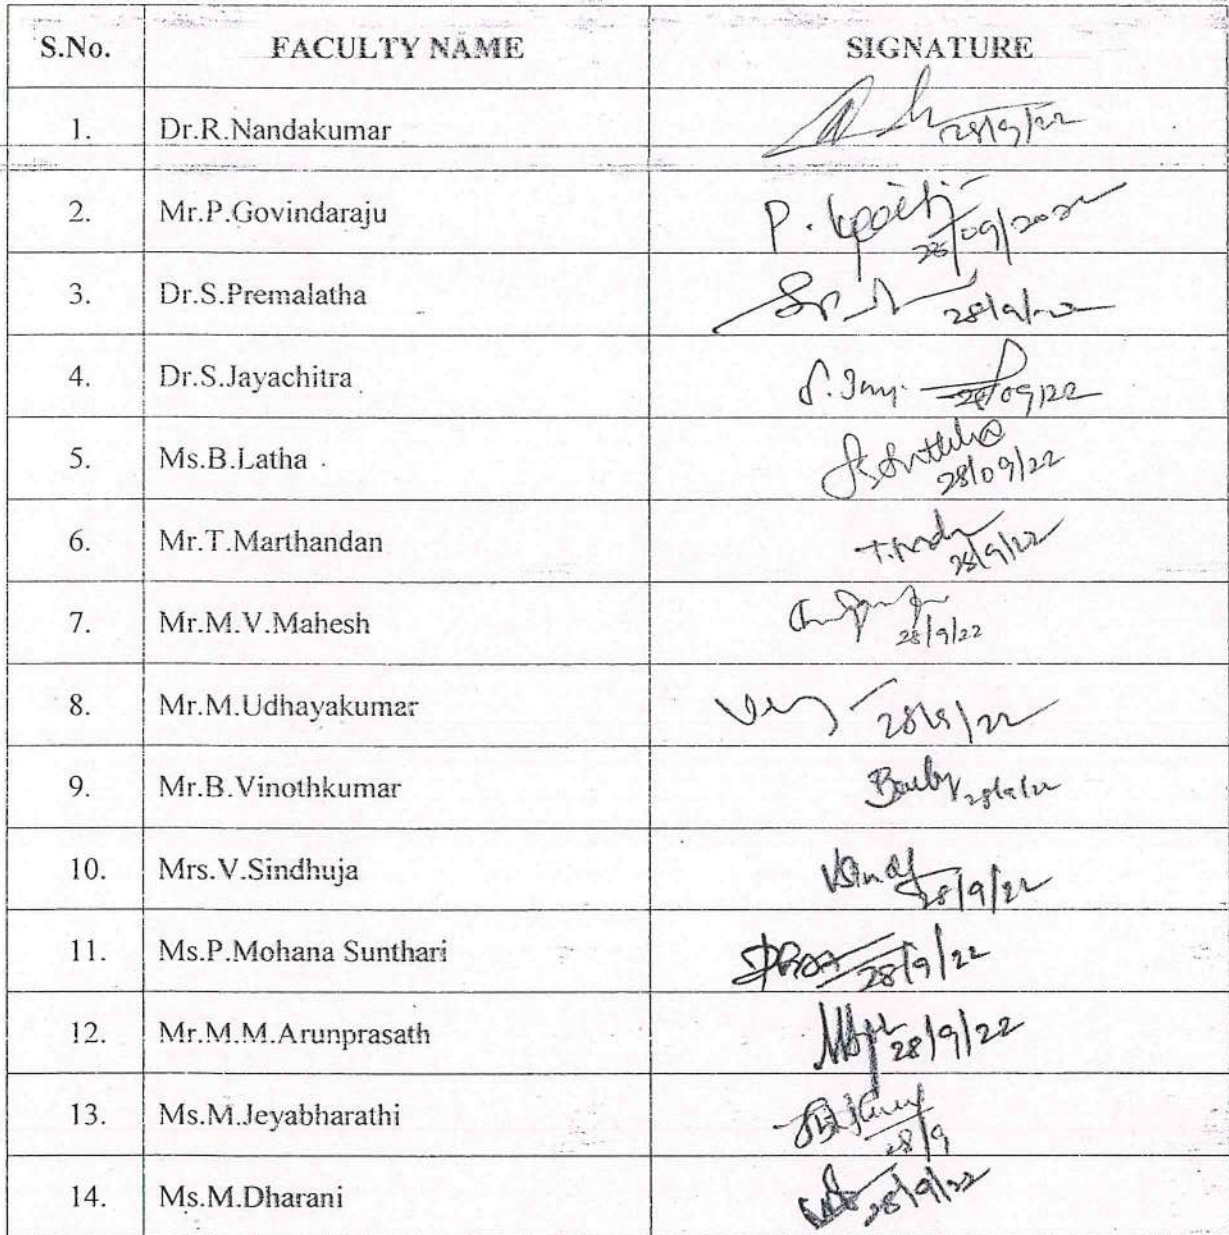 S.No. FACULTY NAME SIGNATURE
1. Dr.R.Nandakumar 28/9/22
2. Mr.P.Govindaraju P. 28/09/2022
3. Dr.S.Premalatha 28/9/22
4. Dr.S.Jayachitra 28/09/22
5. Ms.B.Latha 28/09/22
6. Mr.T.Marthandan 28/9/22
7. Mr.M.V.Mahesh 28/9/22
8. Mr.M.Udhayakumar 28/9/22
9. Mr.B.Vinothkumar 28/9/22
10. Mrs.V.Sindhuja 28/9/22
11. Ms.P.Mohana Sunthari 28/9/22
12. Mr.M.M.Arunprasath 28/9/22
13. Ms.M.Jeyabharathi 28/9
14. Ms.M.Dharani 28/9/22